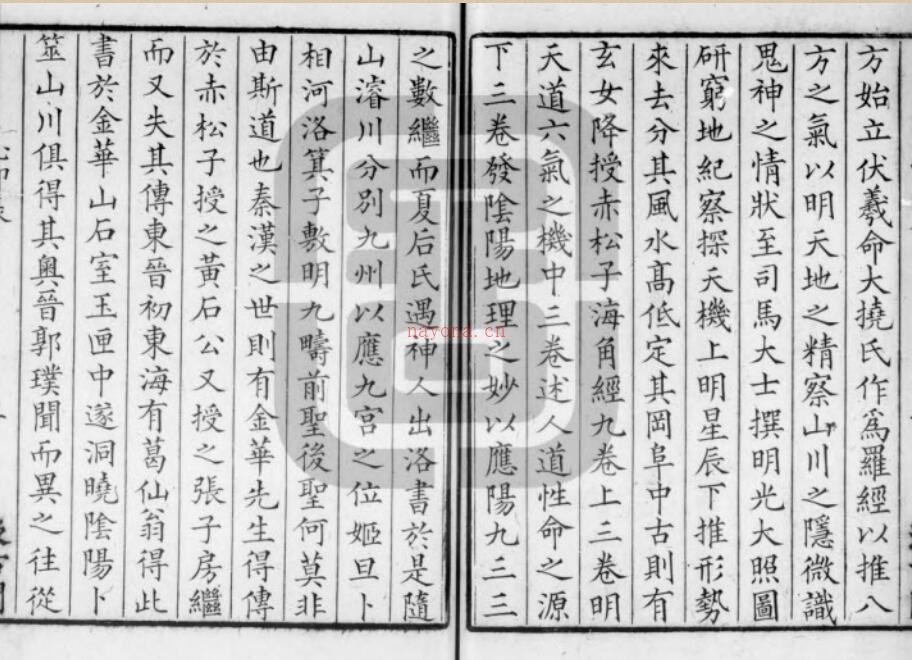 方始立伏羲命大撓氏作爲羅經以推八
方之氣以明天地之精察山川之隱微識
鬼神之情狀至司馬大士撰明光大照圖
研窮地紀察探天機上明星辰下推形勢
來去分其風水高低定其岡阜中古則有
玄女降授赤松子海角經九卷上三卷明
天道六氣之機中三卷述人道性命之源
下三卷發陰陽地理之妙以應陽九三三
之數繼而夏后氏遇神人出洛書於是隨
山濬川分別九州以應九宮之位姬旦卜
相河洛箕子敷明九疇前聖後聖何莫非
由斯道也秦漢之世則有金華先生得傳
於赤松子授之黃石公又授之張子房繼
而又失其傳東晉初東海有葛仙翁得此
書於金華山石室玉匣中遂洞曉陰陽卜
筮山川俱得其奧晉郭璞聞而異之往從
nayona.cn